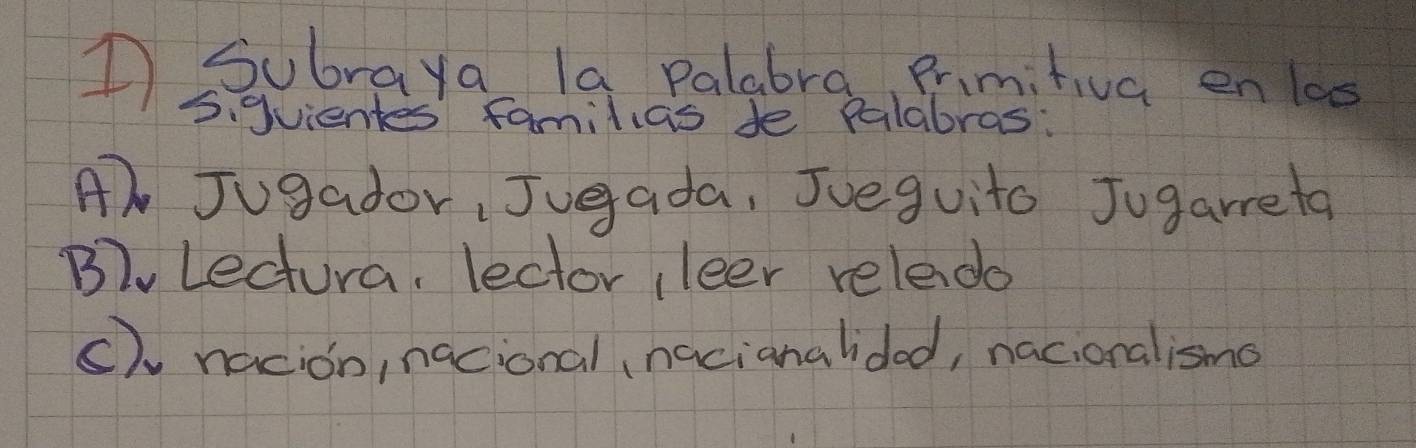 I) Subraya la palabra Primitiva en las
siguientes familias de Palabras:
A) Jugador, Jugada, Jueguito Jugarreta
B) Lectura. lector, leer releido
C) nación, nacional, nacianalidad, nacionalismo